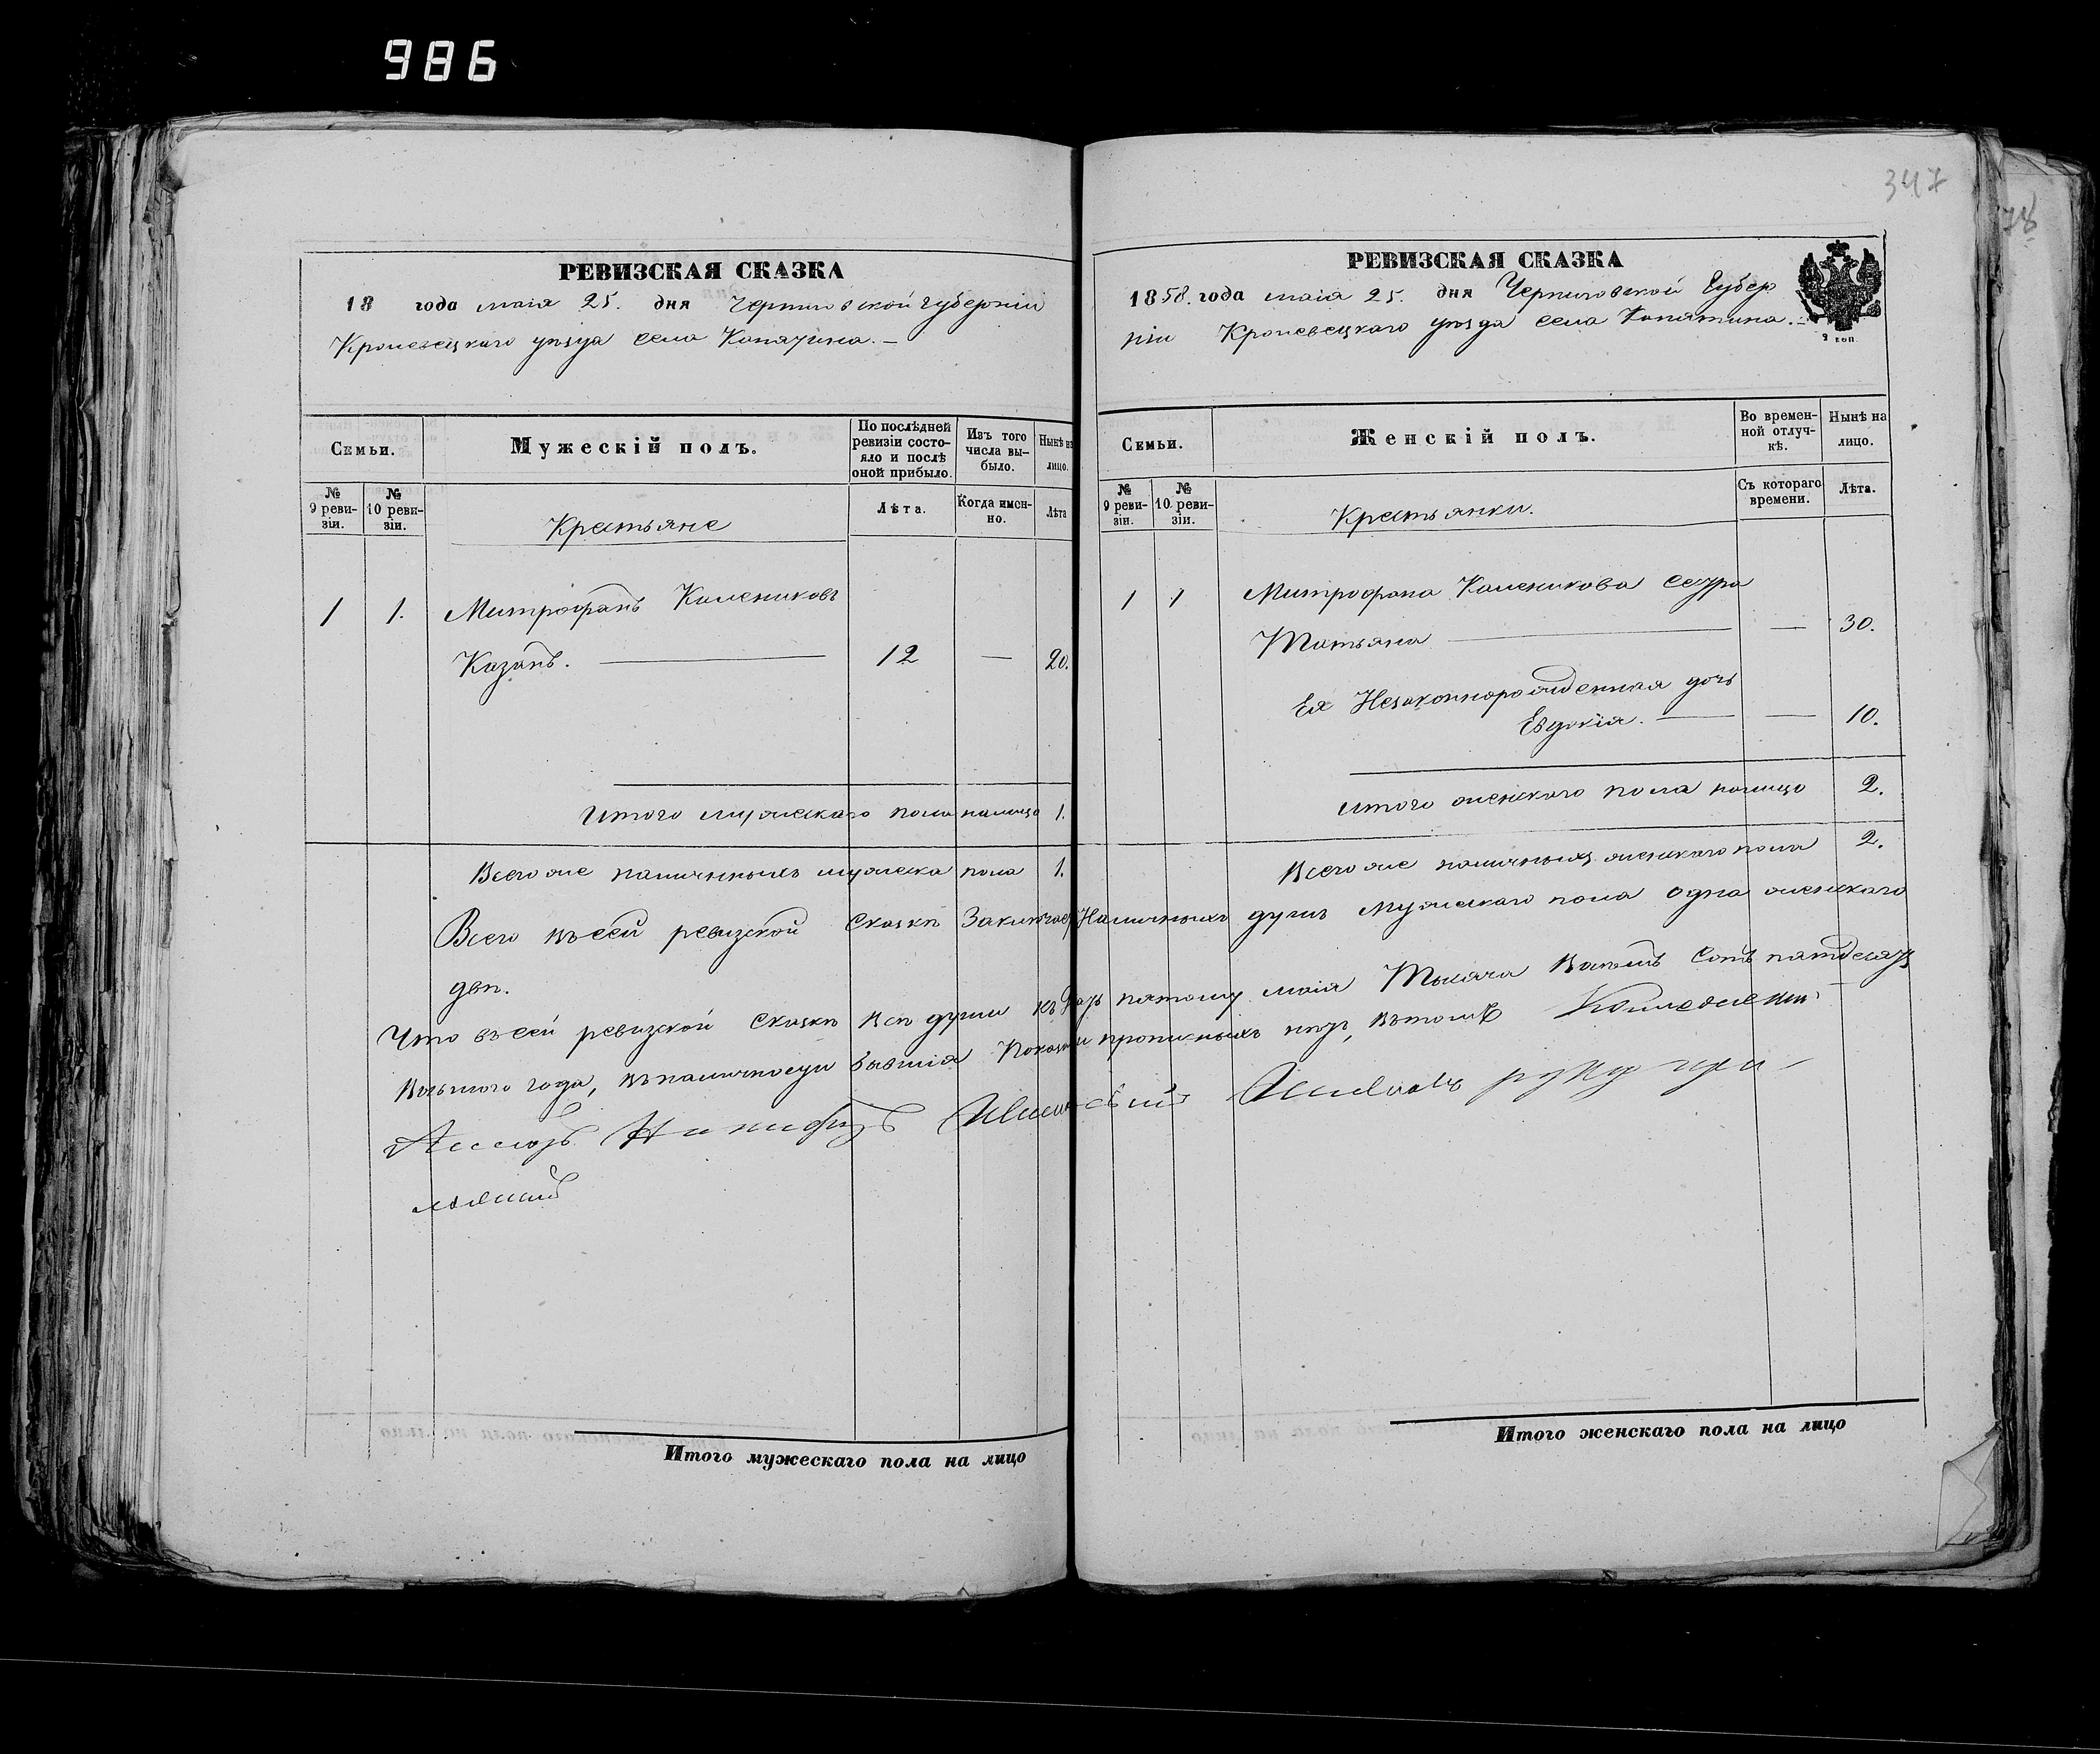 986
347
78
РЕВИЗСКАЯ СКАЗКА
18 года маія 25. дня Черниговской губерніи
Кролевецкаго уѣзда села Копятина.—
Семьи.
Мужескій полъ.
По послѣдней ревизіи состояло и послѣ оной прибыло.
Изъ того числа выбыло.
Нынѣ на лицо.
№ 9 ревизіи.
№ 10 ревизіи.
Крестьяне
Лѣта.
Когда именно.
Лѣта
1 1. Митрофанъ Калениковъ
Казанъ. — 12 — 20.
Итого мужескаго пола налицо 1.
Всего же наличныхъ мужеска пола 1.
РЕВИЗСКАЯ СКАЗКА
1858. года маія 25. дня Черниговской Губер
ніи Кролевецкаго уѣзда села Копятина.—
2 коп.
Семьи.
Женскій полъ.
Во временной отлучкѣ.
Нынѣ на лицо.
№ 9 ревизіи.
№ 10 ревизіи.
Крестьянки.
Съ котораго времени.
Лѣта.
1 1 Митрофана Каленикова сестра
Татьяна — — 30.
Ея Незаконнорожденная дочь
Евдокія. — — 10.
Итого женскаго пола налицо 2.
Всего же наличныхъ женскаго пола 2.
Всего въ сей ревизской Сказкѣ Заключает Наличныхъ душъ мужескаго пола одна женскаго
двѣ.
Что въ сей ревизской Сказкѣ всѣ души къ двадць пятому маія Тысяча восемь Сотъ пятдесятъ
восьмого года, въ наличности бывшія показаны прописныхъ нѣтъ, въ томъ
руку при